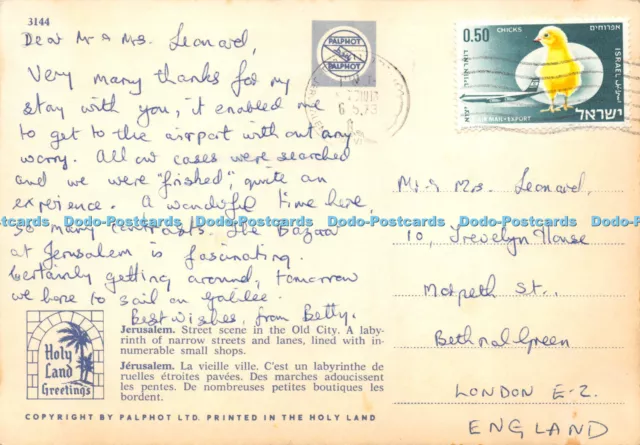 3144
Dear Mr & Mrs. Leonard,
Very many thanks for my
stay with you, it enabled me
to get to the airport without any
worry. All our cases were searched
and we were "frished", quite an
experience. A wonderful time here,
so many contrasts. The Bazaar
at Jerusalem is fascinating.
Certainly getting around, tomorrow
we hope to sail on Galilee.
Best wishes, from Betty.
PALPHOT
PALPHOT
6.5.73
0.50
CHICKS
אפרוחים
דואר אויר
ISRAEL
AIR MAIL-EXPORT
יצוא
ישראל
Mr. & Mrs. Leonard.
10, Trevelyn House
Morpeth St.,
Bethnal Green
LONDON E-2.
ENGLAND
Dodo-Postcards Dodo-Postcards Dodo-Postcards Dodo-Postcards Dodo-Postcards
Holy
Land
Greetings
Jerusalem. Street scene in the Old City. A laby-
rinth of narrow streets and lanes, lined with in-
numerable small shops.
Jérusalem. La vieille ville. C'est un labyrinthe de
ruelles étroites pavées. Des marches adoucissent
les pentes. De nombreuses petites boutiques les
bordent.
COPYRIGHT BY PALPHOT LTD. PRINTED IN THE HOLY LAND